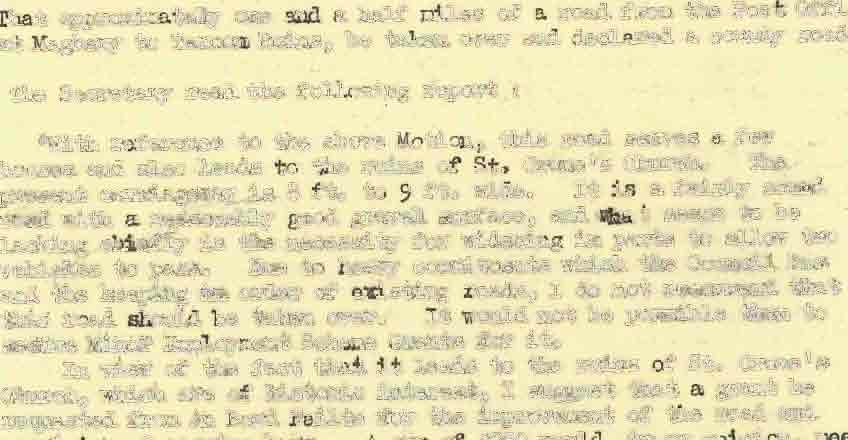 That approximately one and a half miles of a road from the Post Offi
at Maghery to Ruins, be taken over and declared a county road
the Secretary read the following report :
"With reference to the above Motion, this road serves a few
houses and also leads to the ruins of St. Crone's Church. The
present carriageway is 8 ft. to 9 ft. wide. It is a fairly
road with a reasonably good gravel surface, and what seems to be
lacking chiefly is the necessity for widening in parts to allow two
vehicles to pass. Due to heavy commitments which the Council has
and the keeping in order of existing roads, I do not recommend that
this road should be taken over. It would not be possible then to
Minor Employment Scheme Grants for it.
In view of the fact that it leads to the ruins of St. Crone's
Church, which are of historic interest, I suggest that a grant be
requested from An Bord Failte for the improvement of the road and